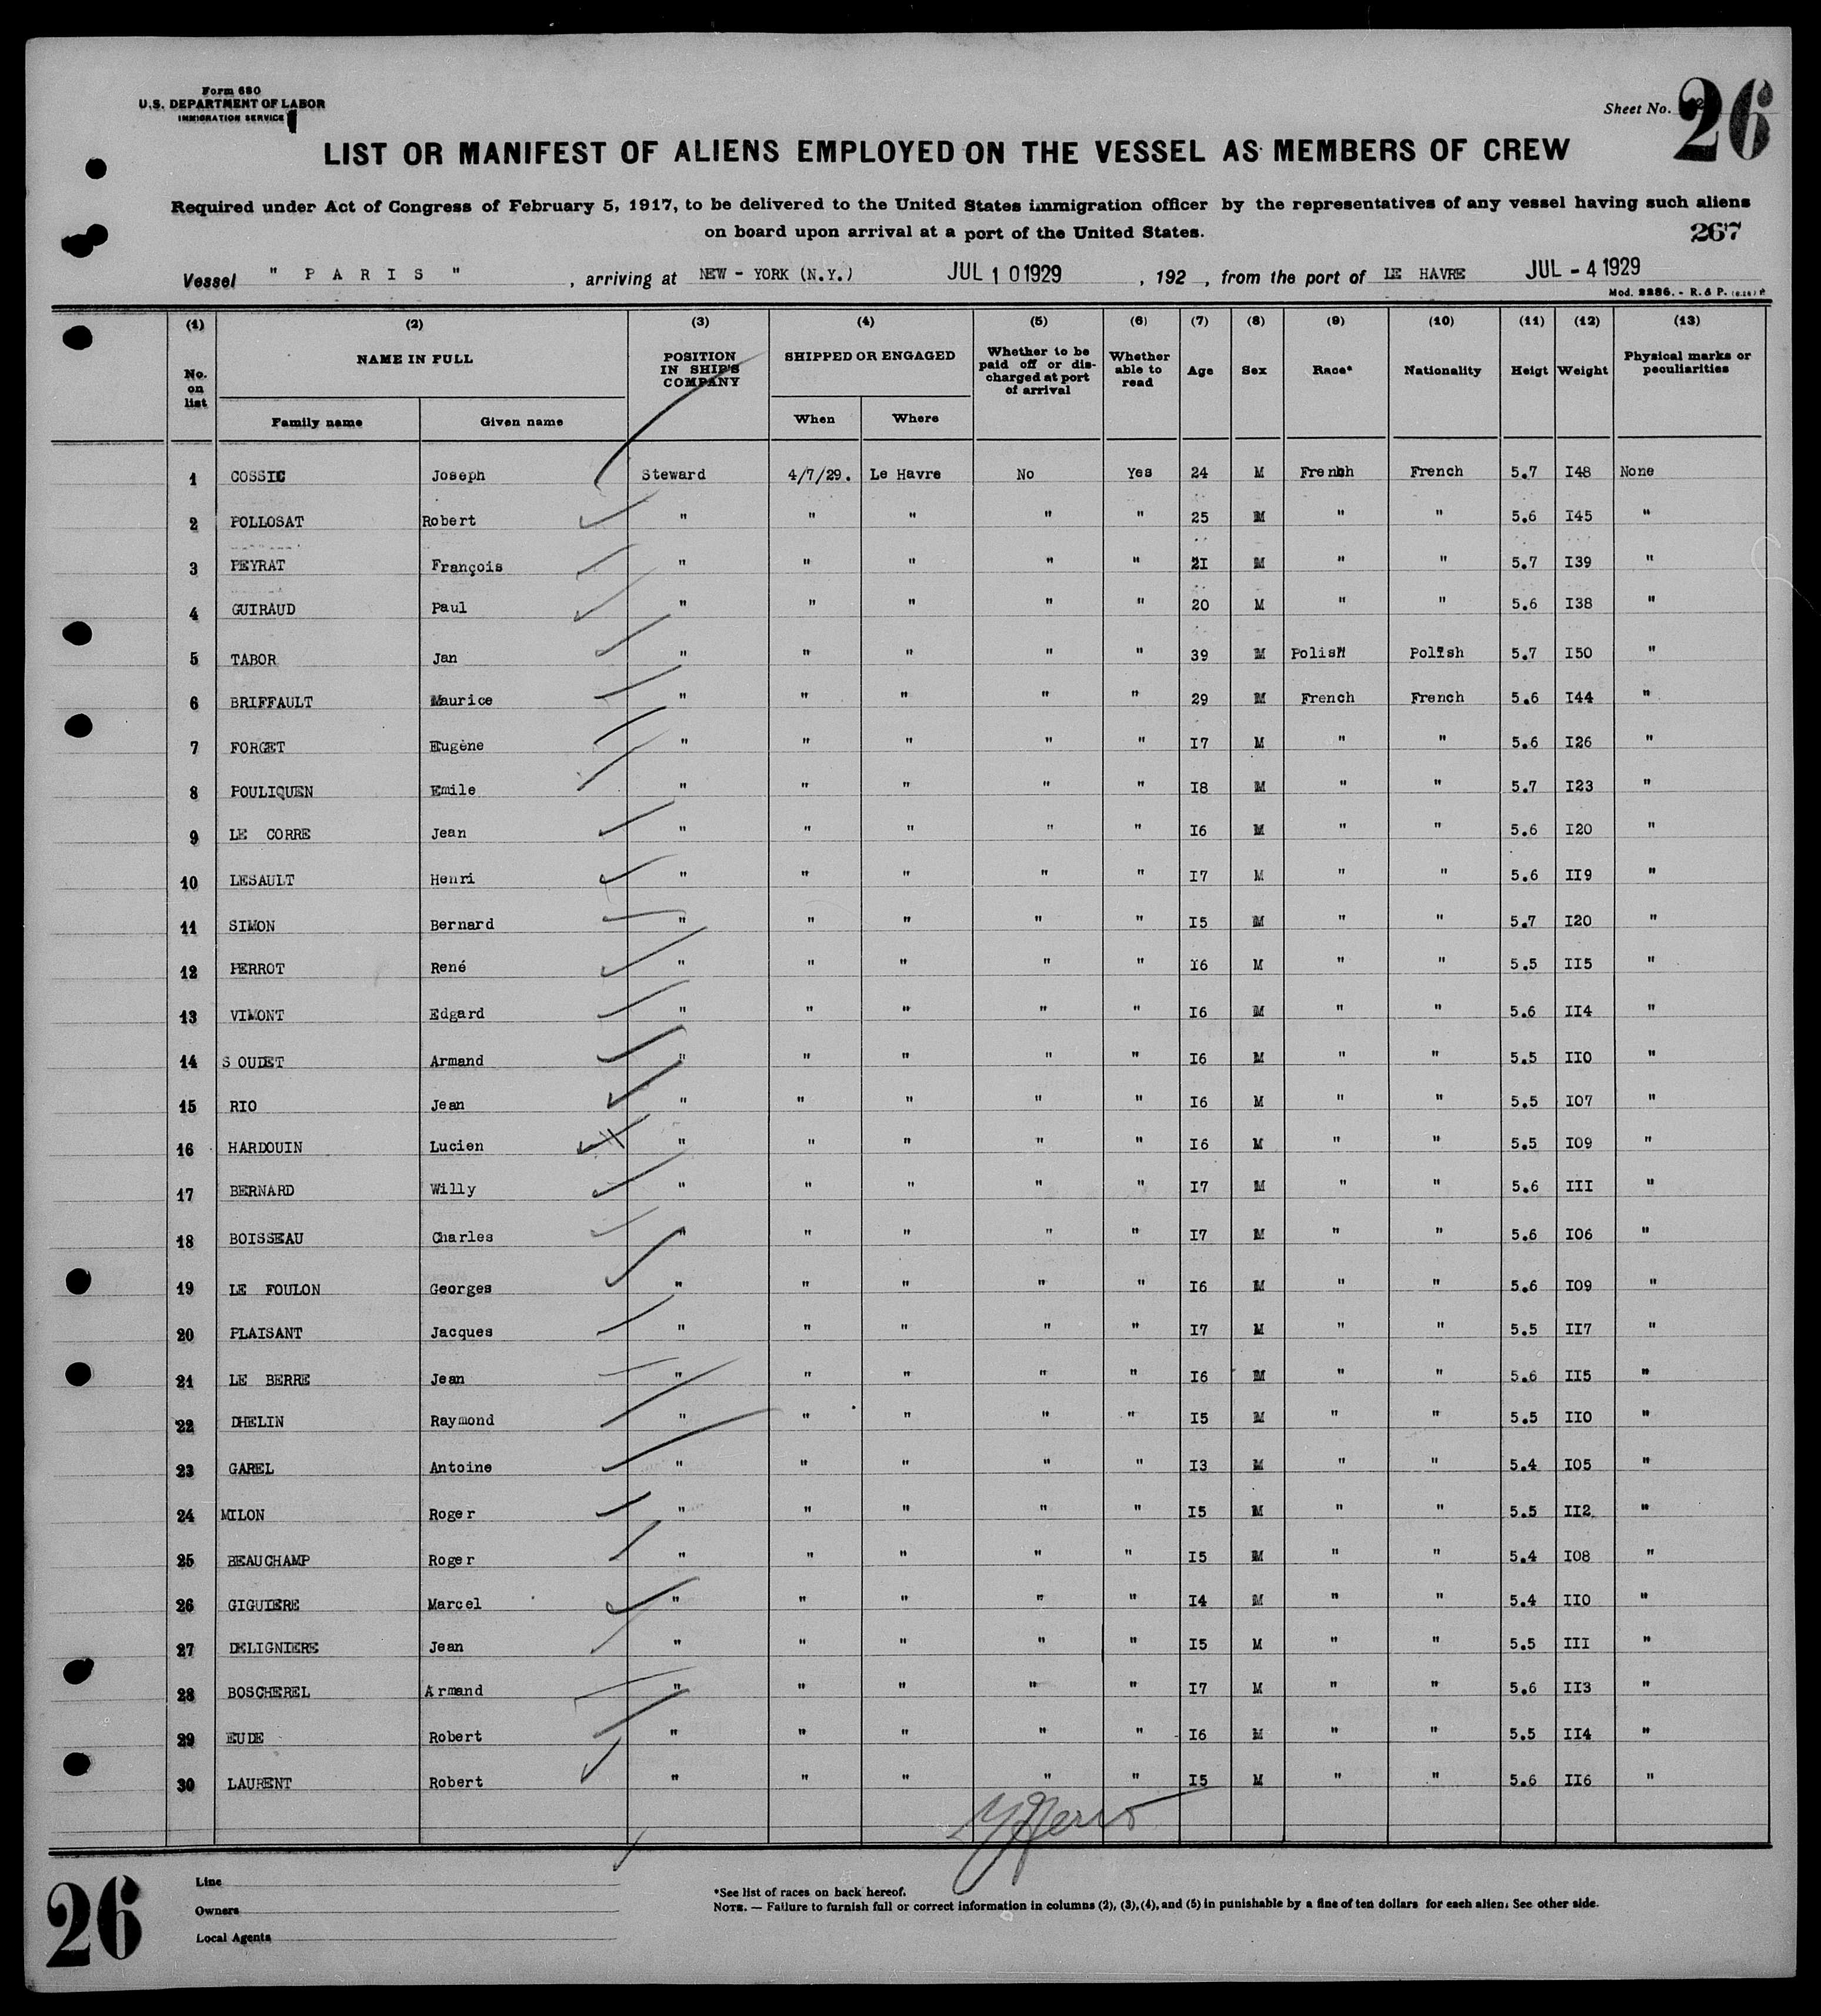 Form 680
U.S. DEPARTMENT OF LABOR
IMMIGRATION SERVICE
Sheet No. 26
LIST OR MANIFEST OF ALIENS EMPLOYED ON THE VESSEL AS MEMBERS OF CREW
Required under Act of Congress of February 5, 1917, to be delivered to the United States immigration officer by the representatives of any vessel having such aliens
on board upon arrival at a port of the United States.
267
Vessel " P A R I S " , arriving at NEW - YORK (N.Y.) JUL 10 1929 , 192 , from the port of LE HAVRE JUL - 4 1929
Mod. 2286. - R. & P.
(1) (2) (3) (4) (5) (6) (7) (8) (9) (10) (11) (12) (13)
No. on list NAME IN FULL Family name Given name POSITION IN SHIP'S COMPANY SHIPPED OR ENGAGED When Where Whether to be paid off or discharged at port of arrival Whether able to read Age Sex Race* Nationality Heigt Weight Physical marks or peculiarities
1 COSSIC Joseph Steward 4/7/29. Le Havre No Yes 24 M French French 5.7 I48 None
2 POLLOSAT Robert " " " " " 25 M " " 5.6 I45 "
3 PEYRAT François " " " " " 2I M " " 5.7 I39 "
4 GUIRAUD Paul " " " " " 20 M " " 5.6 I38 "
5 TABOR Jan " " " " " 39 M Polish Polish 5.7 I50 "
6 BRIFFAULT Maurice " " " " " 29 M French French 5.6 I44 "
7 FORGET Eugène " " " " " I7 M " " 5.6 I26 "
8 POULIQUEN Emile " " " " " I8 M " " 5.7 I23 "
9 LE CORRE Jean " " " " " I6 M " " 5.6 I20 "
10 LESAULT Henri " " " " " I7 M " " 5.6 II9 "
11 SIMON Bernard " " " " " I5 M " " 5.7 I20 "
12 PERROT René " " " " " I6 M " " 5.5 II5 "
13 VIMONT Edgard " " " " " I6 M " " 5.6 II4 "
14 S OUDET Armand " " " " " I6 M " " 5.5 IIO "
15 RIO Jean " " " " " I6 M " " 5.5 IO7 "
16 HARDOUIN Lucien " " " " " I6 M " " 5.5 IO9 "
17 BERNARD Willy " " " " " I7 M " " 5.6 III "
18 BOISSEAU Charles " " " " " I7 M " " 5.6 IO6 "
19 LE FOULON Georges " " " " " I6 M " " 5.6 IO9 "
20 PLAISANT Jacques " " " " " I7 M " " 5.5 II7 "
21 LE BERRE Jean " " " " " I6 M " " 5.6 II5 "
22 DHELIN Raymond " " " " " I5 M " " 5.5 IIO "
23 GAREL Antoine " " " " " I3 M " " 5.4 IO5 "
24 MILON Roger " " " " " I5 M " " 5.5 II2 "
25 BEAUCHAMP Roger " " " " " I5 M " " 5.4 IO8 "
26 GIGUIERE Marcel " " " " " I4 M " " 5.4 IIO "
27 DELIGNIERE Jean " " " " " I5 M " " 5.5 III "
28 BOSCHEREL Armand " " " " " I7 M " " 5.6 II3 "
29 EUDE Robert " " " " " I6 M " " 5.5 II4 "
30 LAURENT Robert " " " " " I5 M " " 5.6 II6 "
26
Line
Owners
Local Agents
*See list of races on back hereof.
NOTE. — Failure to furnish full or correct information in columns (2), (3), (4), and (5) in punishable by a fine of ten dollars for each alien. See other side.